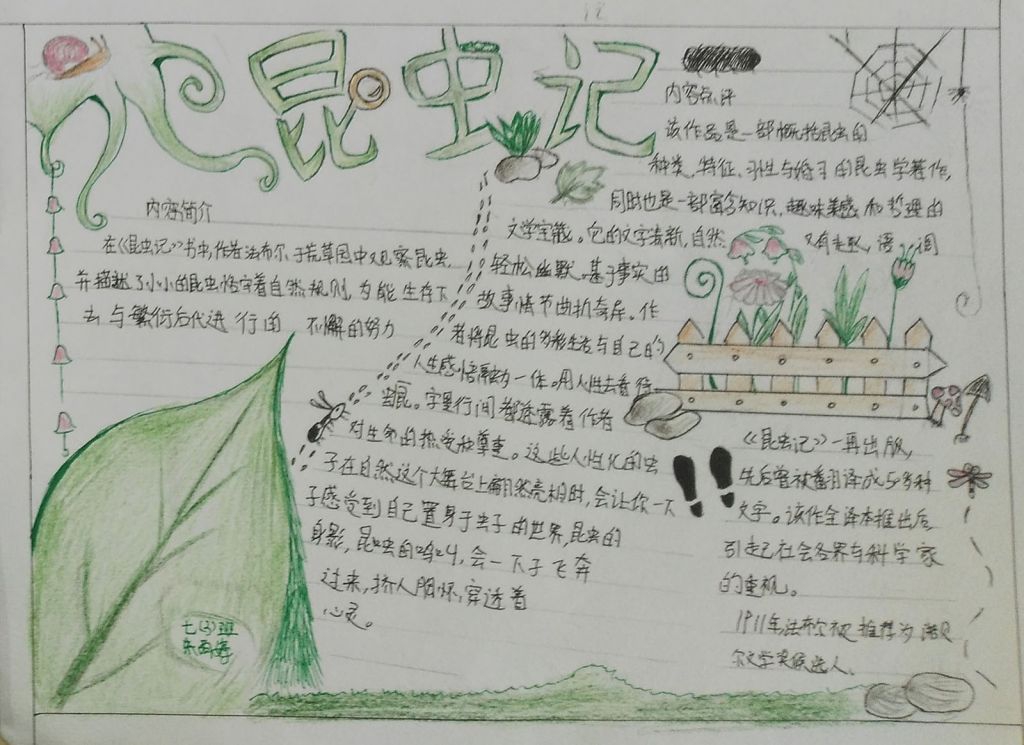 昆虫记
内容简介
在《昆虫记》书中,作者法布尔于荒草园中观察昆虫,
并描述了小小的昆虫恪守着自然规则,为能生存下
去与繁衍后代进行的 不懈的努力
内容点评
该作品是一部概括昆虫的
种类、特征、习性与婚习的昆虫学著作,
同时也是一部富含知识,趣味美感和哲理的
文学宝藏。它的文字清新,自然 又有趣,语词
轻松幽默。基于事实的
故事情节曲折奇异。作
者将昆虫的多彩生活与自己的
人生感悟融为一体。用人性去看待
昆虫。字里行间都透露着作者
对生命的热爱和尊重。这些人性化的虫
子在自然这个大舞台上翩然亮相时,会让你一下
子感受到自己置身于虫子的世界,昆虫的
身影,昆虫的鸣叫,会一下子飞奔
过来,挤入胸怀,穿透着
心灵。
《昆虫记》一再出版,
先后曾被翻译成50多种
文字。该作全译本推出后
引起社会各界与科学家
的重视。
1911年法布尔被推荐为诺贝
尔文学奖候选人.
七(3)班